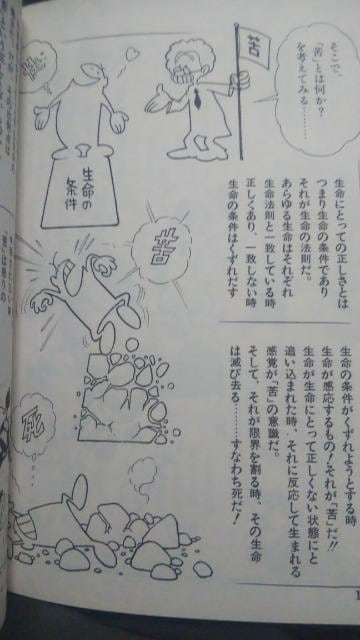 そこで、
「苦」とは何か?
を考えてみる………
苦
生命の
条件
生命にとっての正しさとは
つまり生命の条件であり
それが生命の法則だ。
あらゆる生命はそれぞれ
生命法則と一致している時
正しくあり、一致しない時
生命の条件はくずれだす
苦
生命の条件がくずれようとする時
生命が感応するもの!それが「苦」だ!!
生命が生命にとって正しくない状態にと
追い込まれた時、それに反応して生まれる
感覚が「苦」の意識だ。
そしてそれが限界を割る時、その生命
は滅び去る………すなわち死だ!
死